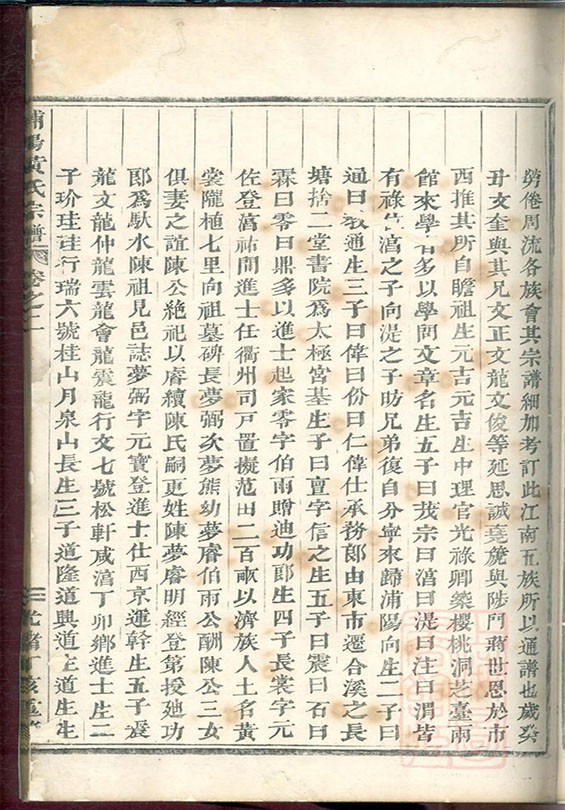 勞倦周流各族會其宗譜細加考訂此江南五族所以通譜也歲癸
丑文奎與其兄文正文龍文俊等延思誠堯旄與陟門蔣世恩於市
西推其所自瞻祖生元吉元吉生中理官光祿卿築櫻桃洞芝臺兩
館來學者多以學問文章名生五子曰茂宗曰滈曰湜曰注曰渭皆
有祿生滈之子向湜之子昉兄弟復自分寧來歸浦陽向生二子曰
通曰敬通生三子曰偉曰份曰仁偉仕承務郎由東市遷合溪之長
塘捨二堂書院爲太極宮基生子曰亶字信之生五子曰震曰石曰
霖曰零曰鼎多以進士起家零字伯雨贈迪功郎生四子長裳字元
佐登萬祐間進士任衢州司戶置擬范田二百畝以濟族人土名黃
裳隴植七里向祖墓碑長夢弼次夢熊幼夢睿伯雨公酬陳公三女
俱妻之誼陳公絶祀以睿續陳氏嗣更姓陳夢睿明經登第授廸功
郎爲馱水陳祖見邑誌夢弼字元寶登進士仕西京運幹生五子震
龍文龍仲龍雲龍會龍震龍行文七號松軒咸滈丁卯鄉進士生二
子玠珪珪行瑞六號桂山月泉山長生三子道隆道興道立道生生
浦陽黃氏宗譜 卷之二
光緒丁亥重修